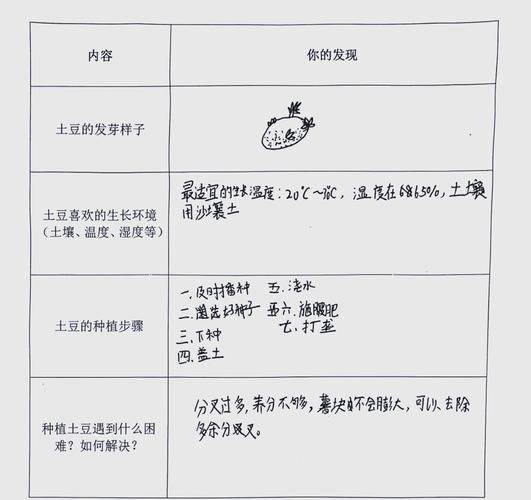 内容 你的发现
土豆的发芽样子
土豆喜欢的生长环境
（土壤、温度、湿度等）
最适宜的生长湿度：20℃～ ℃，湿度在 %，土壤
用沙壤土
土豆的种植步骤
一.及时播种 五.浇水
二.选好种子 六.施腰肥
三.下种 七.打垄
四.盖土
种植土豆遇到什么困
难？如何解决？
分叉过多，养分不够多，薯块 不会膨大，可以去除
多余分叉。